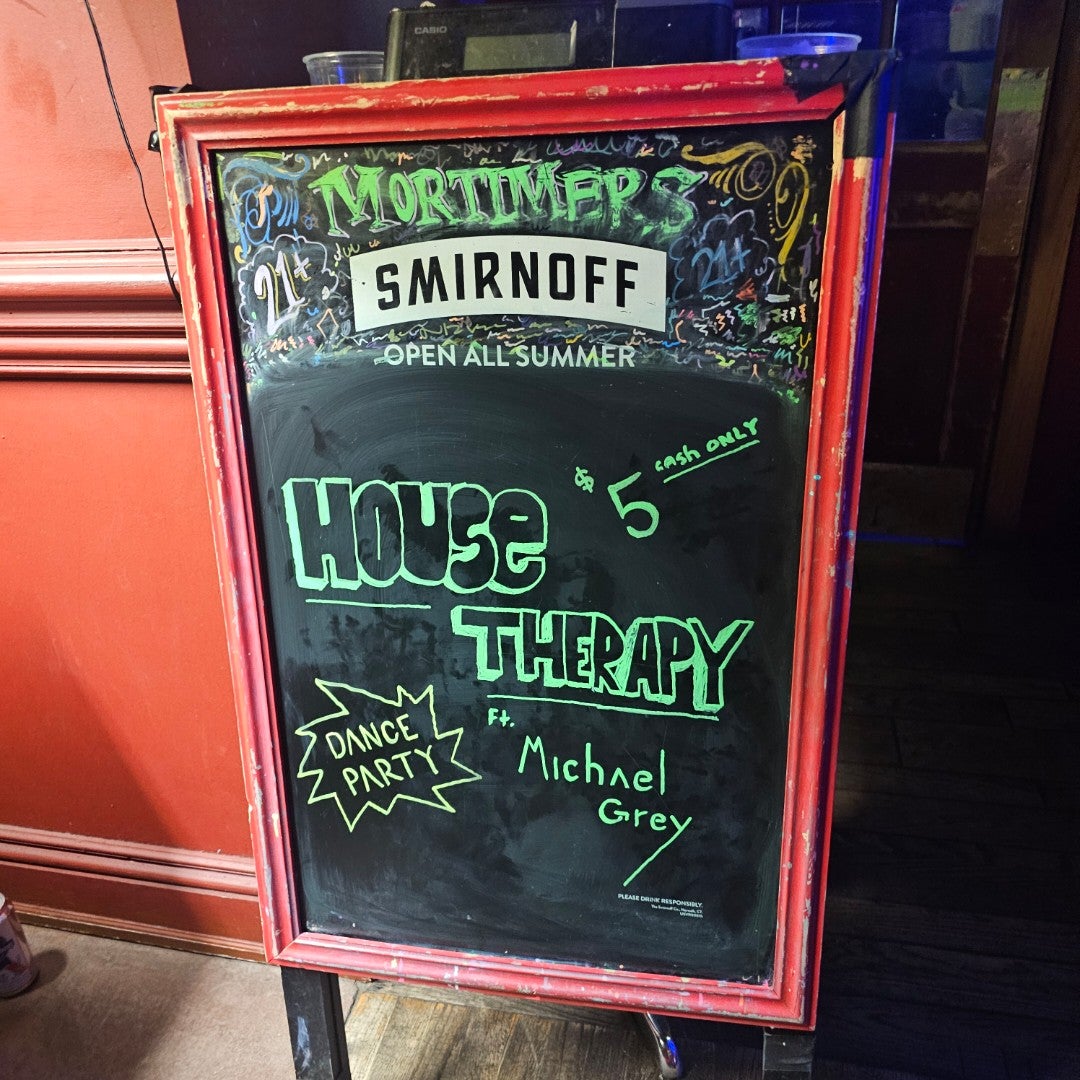 CASIO
MORTIMERS
21+
21+
SMIRNOFF
OPEN ALL SUMMER
$5 CASH ONLY
HOUSE
THERAPY
DANCE
PARTY
Ft.
Michael
Grey
PLEASE DRINK RESPONSIBLY.